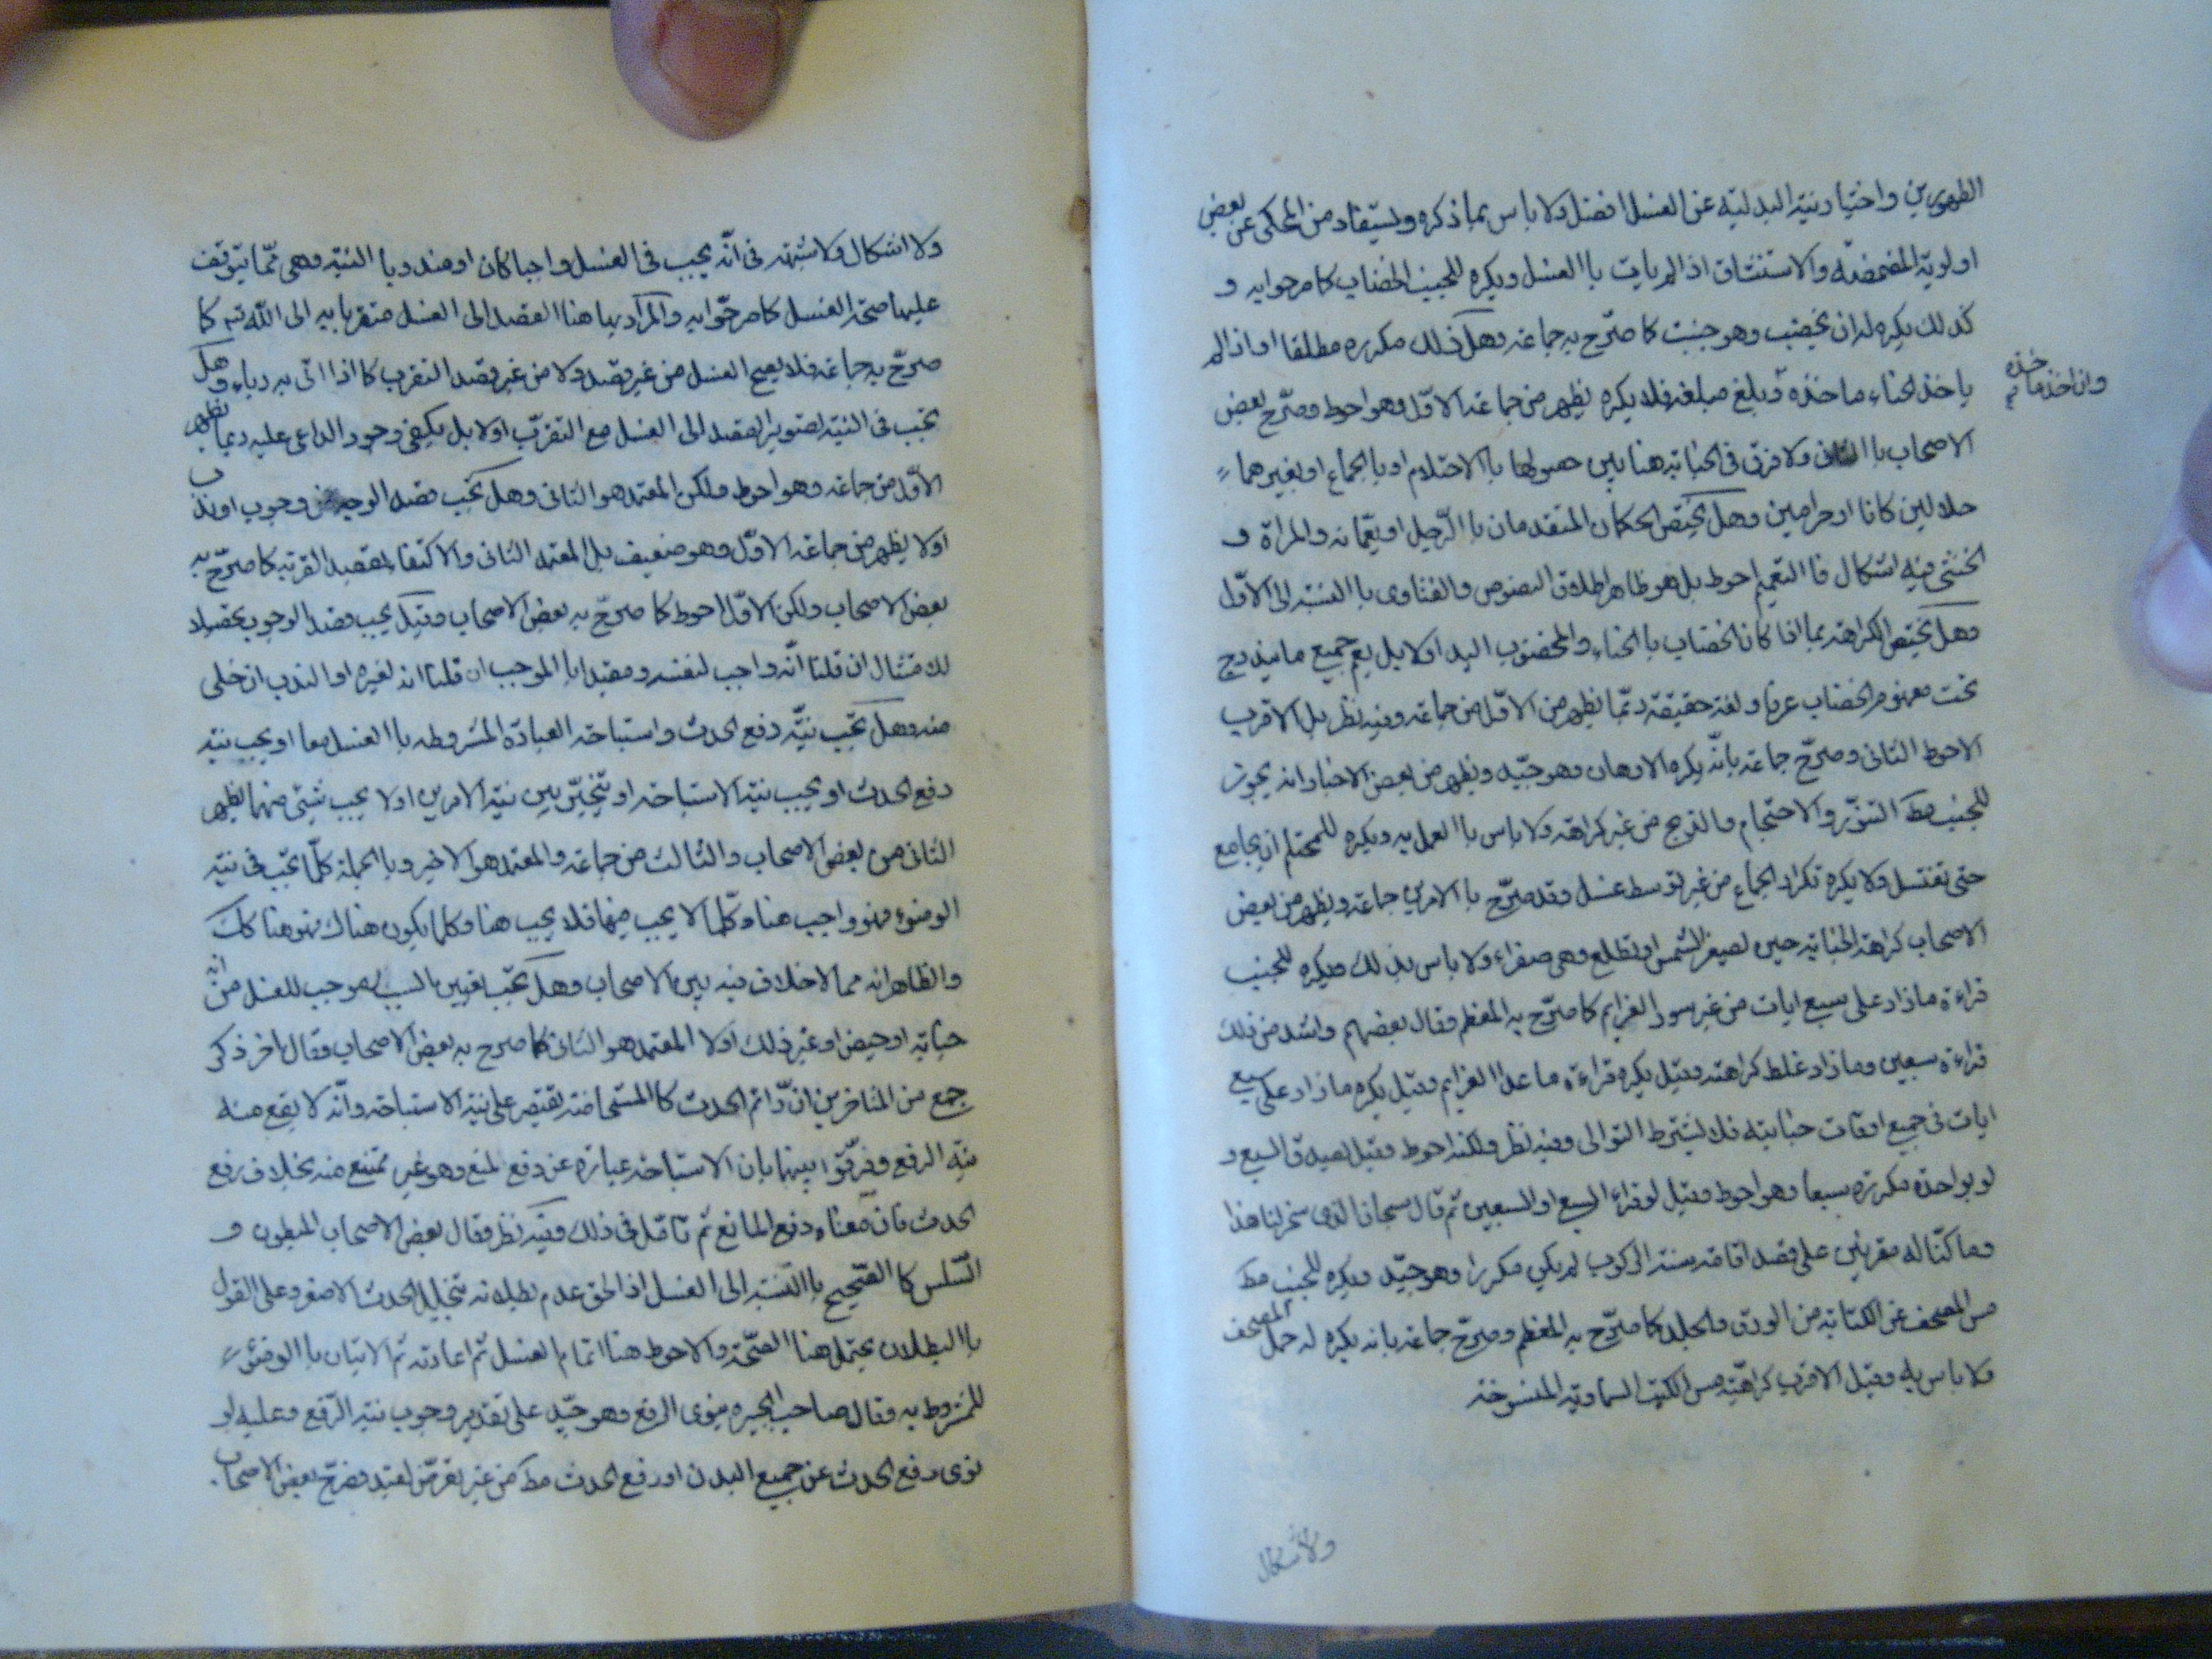 الطهورين واختيار نية البدلية عن الغسل افضل ولا باس بما ذكره ويستفاد من المحكى عن بعض
اولوية المضمضة والاستنشاق اذا لم يات باالغسل ويكره للجنب الخضاب كا مرحوابه و
كذلك يكره له ان يختضب وهو جنب كا صرّح به جماعة وهل ذلك مكرره مطلقا او اذا لم
ياخذ الحناء ماخذه ويبلغ مبلغه فلا يكره يظهر من جماعة الاوّل وهو احوط وصرّح بعض
وان اخذ ماخذه
الاصحاب باالثانى ولا فرق فى الجنابة هنا بين حصولها باالاحتلام او باالجماع او بغيرهما
حلالين كانا او حرامين وهل يختص الحكمان المتقدمان باالرّجل او يعّمانه والمراة و
الخنثى فيه اشكال فاالتعميم احوط بل هو ظاهر اطلاق النصوص والفتاوى باالنسبة الى الاوّل
وهل يختص الكراهة بما اذا كان الخضاب باالحناء والمخضوب اليد اولا بل يعم جميع ما يندرج
تحت مفهوم الخضاب عرفا ولغة حقيقة ربّما يظهر من الاوّل من جماعة وفيه نظر بل الاقرب
الاحوط الثانى وصرّح جماعة بانّه يكره الادهان وهو جيّد ويظهر من بعض الاخبار انه يجوز
للجنب مط التنوّر والاحتجام والذبح من غير كراهة ولا باس باالعمل به ويكره للمحتلم ان يجامع
حتى يغتسل ولا يكره تكرار الجماع من غير توسط غسل وقد صرّح باالامرين جماعة ويظهر من بعض
الاصحاب كراهة الجنابة حين تصيفر الشمس او تطلع وهى صفراء ولا باس بذلك ويكره للجنب
قراءة ما زاد على سبع ايات من غير سور العزايم كا صرّح به المعظم وقال بعضهم واشد من ذلك
قراءة سبعين وما زاد غلظ كراهته وقيل يكره قراءة ما عدا العزايم وقيل يكره ما زاد على سبع
ايات فى جميع اوقات جنابته فلا يشترط التوالى وفيه نظر ولكنه احوط وقيل يصدق السبع و
لو بواحدة مكررة سبعا وهو احوط وقيل لو قراء السبع او السبعين ثم قال سبحان الذى سخر لنا هذا
وما كنّا له مقرنين على قصد اقامة سنة الركوب لم يكن مكررا وهو جيّد ويكره للجنب مط
مس المصحف غير الكتابة من الورق والجلد كا صرّح به المعظم وصرّح جماعة بانه يكره له حمل المصحف
ولا باس به وقيل الاقرب كراهيّة مس الكتب السماويّة المنسوخة
ولا اشكال
ولا اشكال ولا شبهة فى انّه يجب فى الغسل واجبا كان او مندوبا النيّة وهى ممّا يتوقف
عليها صحّة الغسل كا مرحوّابه والمراد بها هنا القصد الى الغسل متقربا به الى اللّه تم كا
صرّح به جماعة فلا يصح الغسل من غير قصد ولا من غير قصد التقرب كا اذا اتى به رياء وهل
يجب فى النيّة تصوير القصد الى الغسل مع التقرّب اولا بل يكفى وجود الداعى عليه ربما يظهر
الاوّل من جماعة وهو احوط ولكن المعتمد هو الثانى وهل يجب قصد الوجه من وجوب او ندب
اولا يظهر من جماعة الاوّل وهو ضعيف بل المعتمد الثانى والاكتفاء بقصد القربة كا صرّح به
بعض الاصحاب ولكن الاوّل احوط كا صرّح به بعض الاصحاب وقيل يجب قصد الوجوب
ان قلنا انّه واجب لنفسه ومقيدا باالموجب ان قلنا انه لغيره او الندب ان خلى
منه وهل يجب نيّة رفع الحدث واستباحة العبادة المشروطه باالغسل معا او يجب نيّة
رفع الحدث او يجب نيّة الاستباحة او يتخيّر بين نيّة الامرين اولا يجب شيئ منهما يظهر
الثانى من بعض الاصحاب والثالث من جماعة والمعتمد هو الاخير وباالجملة كلّما يجب فى نيّة
الوضوء فهو واجب هنا وكلّما لا يجب فيها فلا يجب هنا وكلما يكون هناك فهو هنا كك
والظاهر انه مما لا خلاف فيه بين الاصحاب وهل يجب تعيين السبب الموجب للغسل من انه
جنابة او حيض او غير ذلك اولا المعتمد هو الثانى كا صرح به بعض الاصحاب وقال اخر ذكر
جمع من المتاخرين انّ دائم الحدث كا المستحاضة يقتصر على نيّة الاستباحة وانّه لا يقع منه
نيّة الرفع وفرّقوا بينهما بان الاستباحة عبارة عن رفع المنع وهو غير ممتنع منه بخلاف رفع
الحدث فان معناه رفع المانع ثم تامّل فى ذلك وفيه نظر وقال بعض الاصحاب المبطون و
السّلس كا الصّحيح باالنسبة الى الغسل اذ الحق عدم بطلانه بتخلل الحدث الاصغر وعلى القول
باالبطلان يحتمل هنا الصّحة والاحوط هنا اتمام الغسل ثم اعادته ثم الاتيان باالوضوء
للمشروط به وقال صاحب الجبيره ينوى الرفع وهو جيّد على تقدير وجوب نيّة الرّفع وعليه لو
نوى رفع الحدث عن جميع البدن او رفع الحدث مط من غير تعرّض لقيد فصرّح بعض الاصحاب